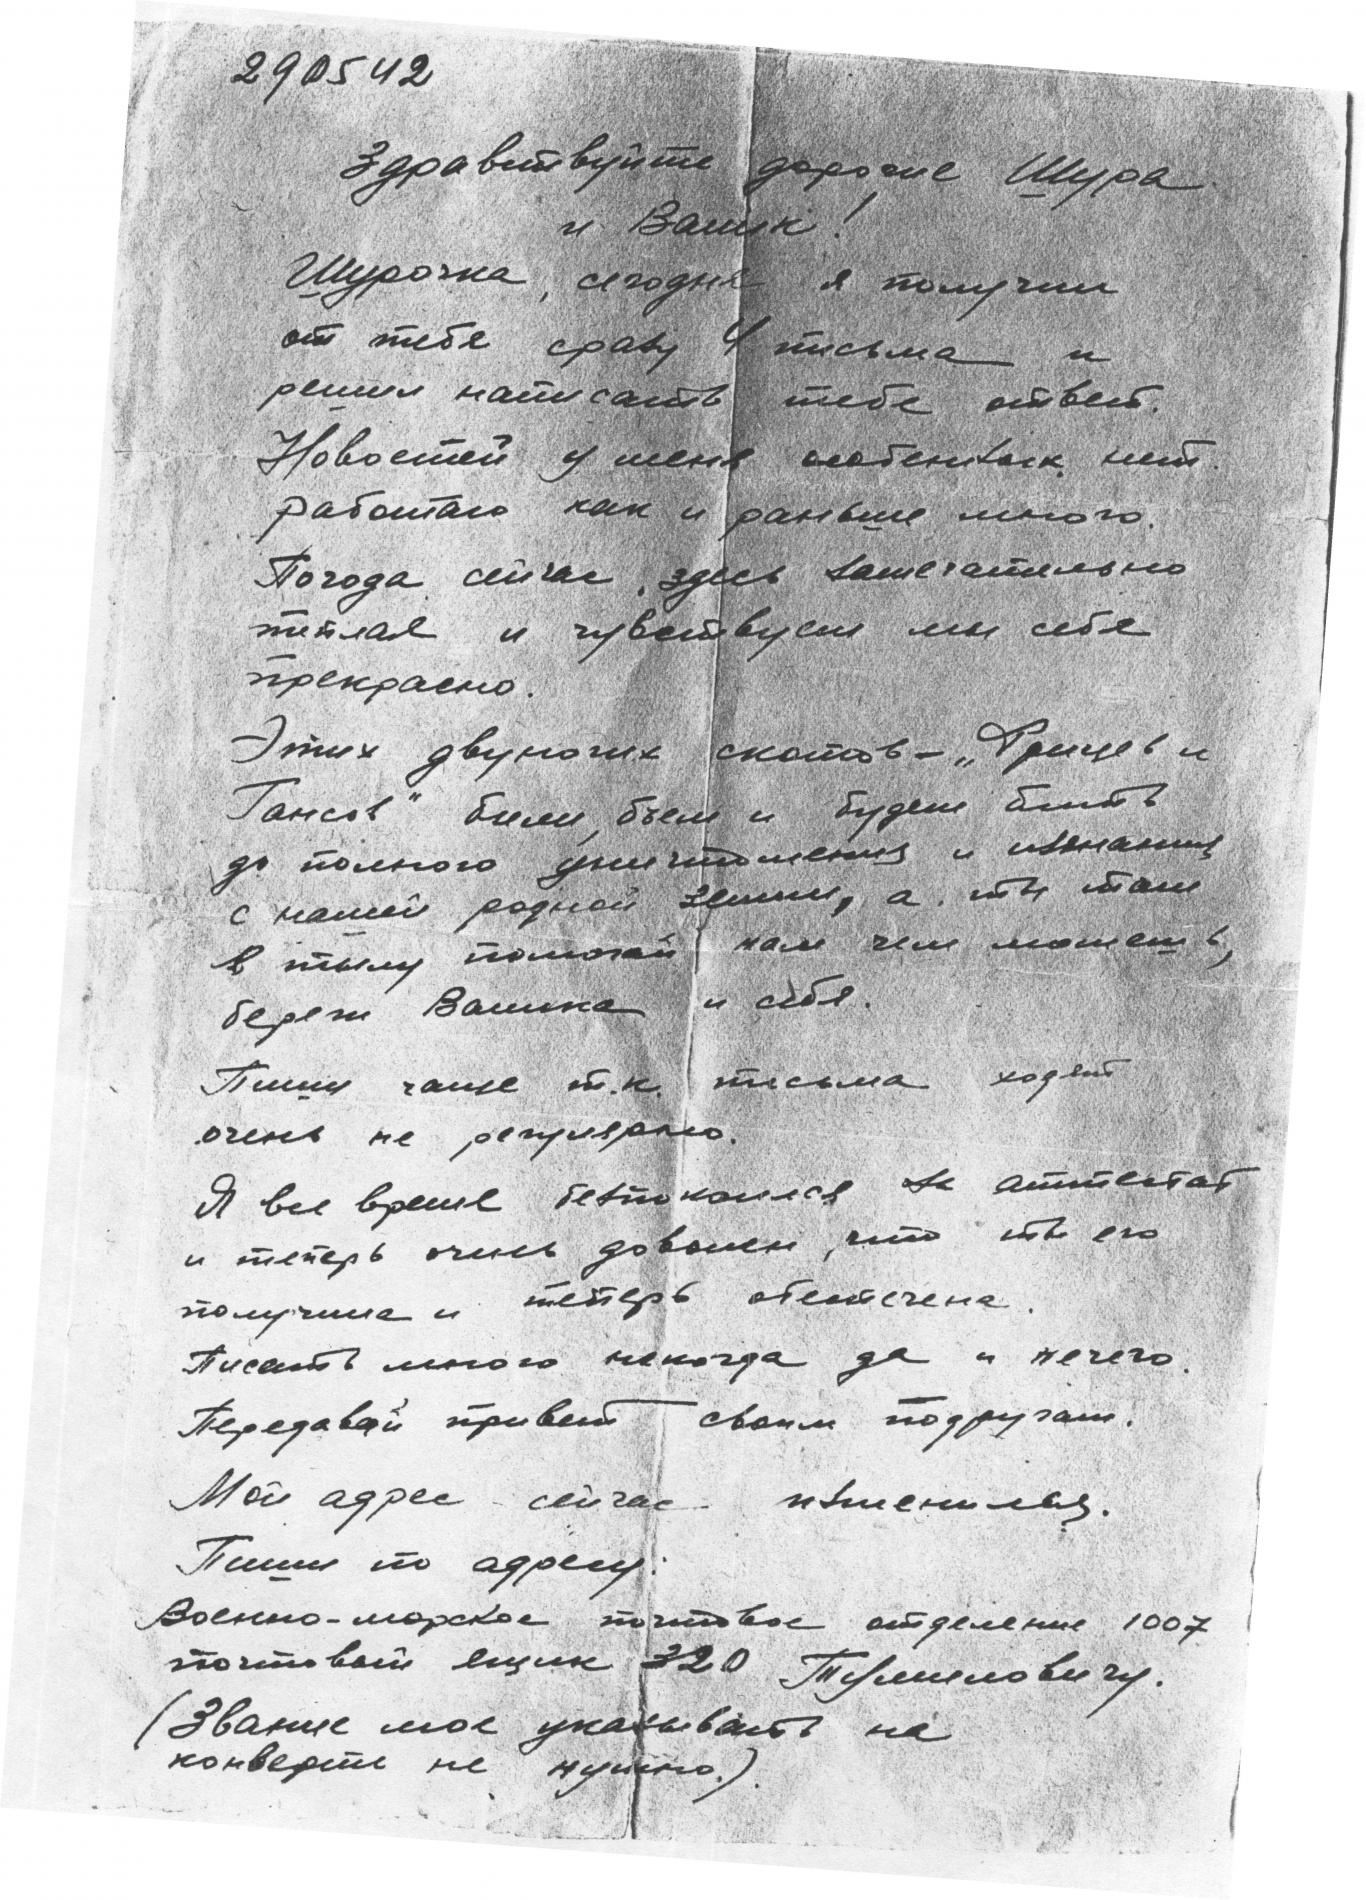 290542
Здравствуйте дорогие Шура
и Валик!
Шурочка, сегодня я получил
от тебя сразу 4 письма и
решил написать тебе ответ.
Новостей у меня особенных нет.
работаю как и раньше много.
Погода сейчас здесь замечательно
теплая и чувствуем мы себя
прекрасно.
Этих двуногих скотов – „Фрицев и
Гансов" били, бьем и будем бить
до полного уничтожения и изгнания
с нашей родной земли, а ты там
в тылу помогай нам чем можешь,
береги Валика и себя.
Пиши чаще т.к. письма ходят
очень не регулярно.
Я все время безпокоился за аттестат
и теперь очень доволен, что ты его
получила и теперь обеспечена.
Писать много некогда да и нечего.
Передавай привет своим подругам.
Мой адрес сейчас изменился.
Пиши по адресу:
Военно-морское почтовое отделение 1007
почтовый ящик 320 Тумиловичу.
(Звание мое указывать на
конверте не нужно.)